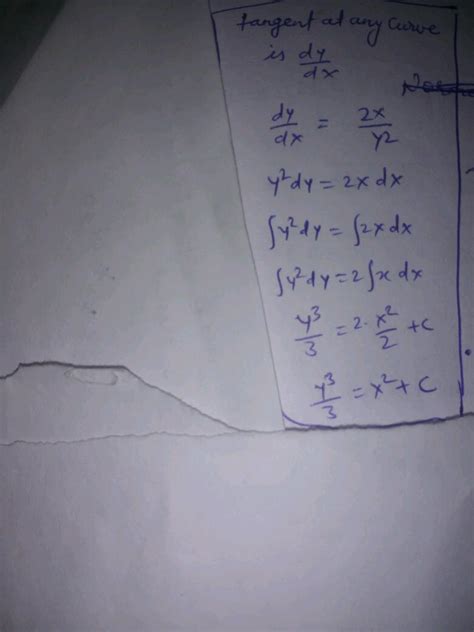 tangent at any curve
is dy/dx
dy/dx = 2x/y2
y²dy = 2x dx
∫y²dy = ∫2x dx
∫y²dy = 2∫x dx
y³/3 = 2·x²/2 + c
y³/3 = x² + C